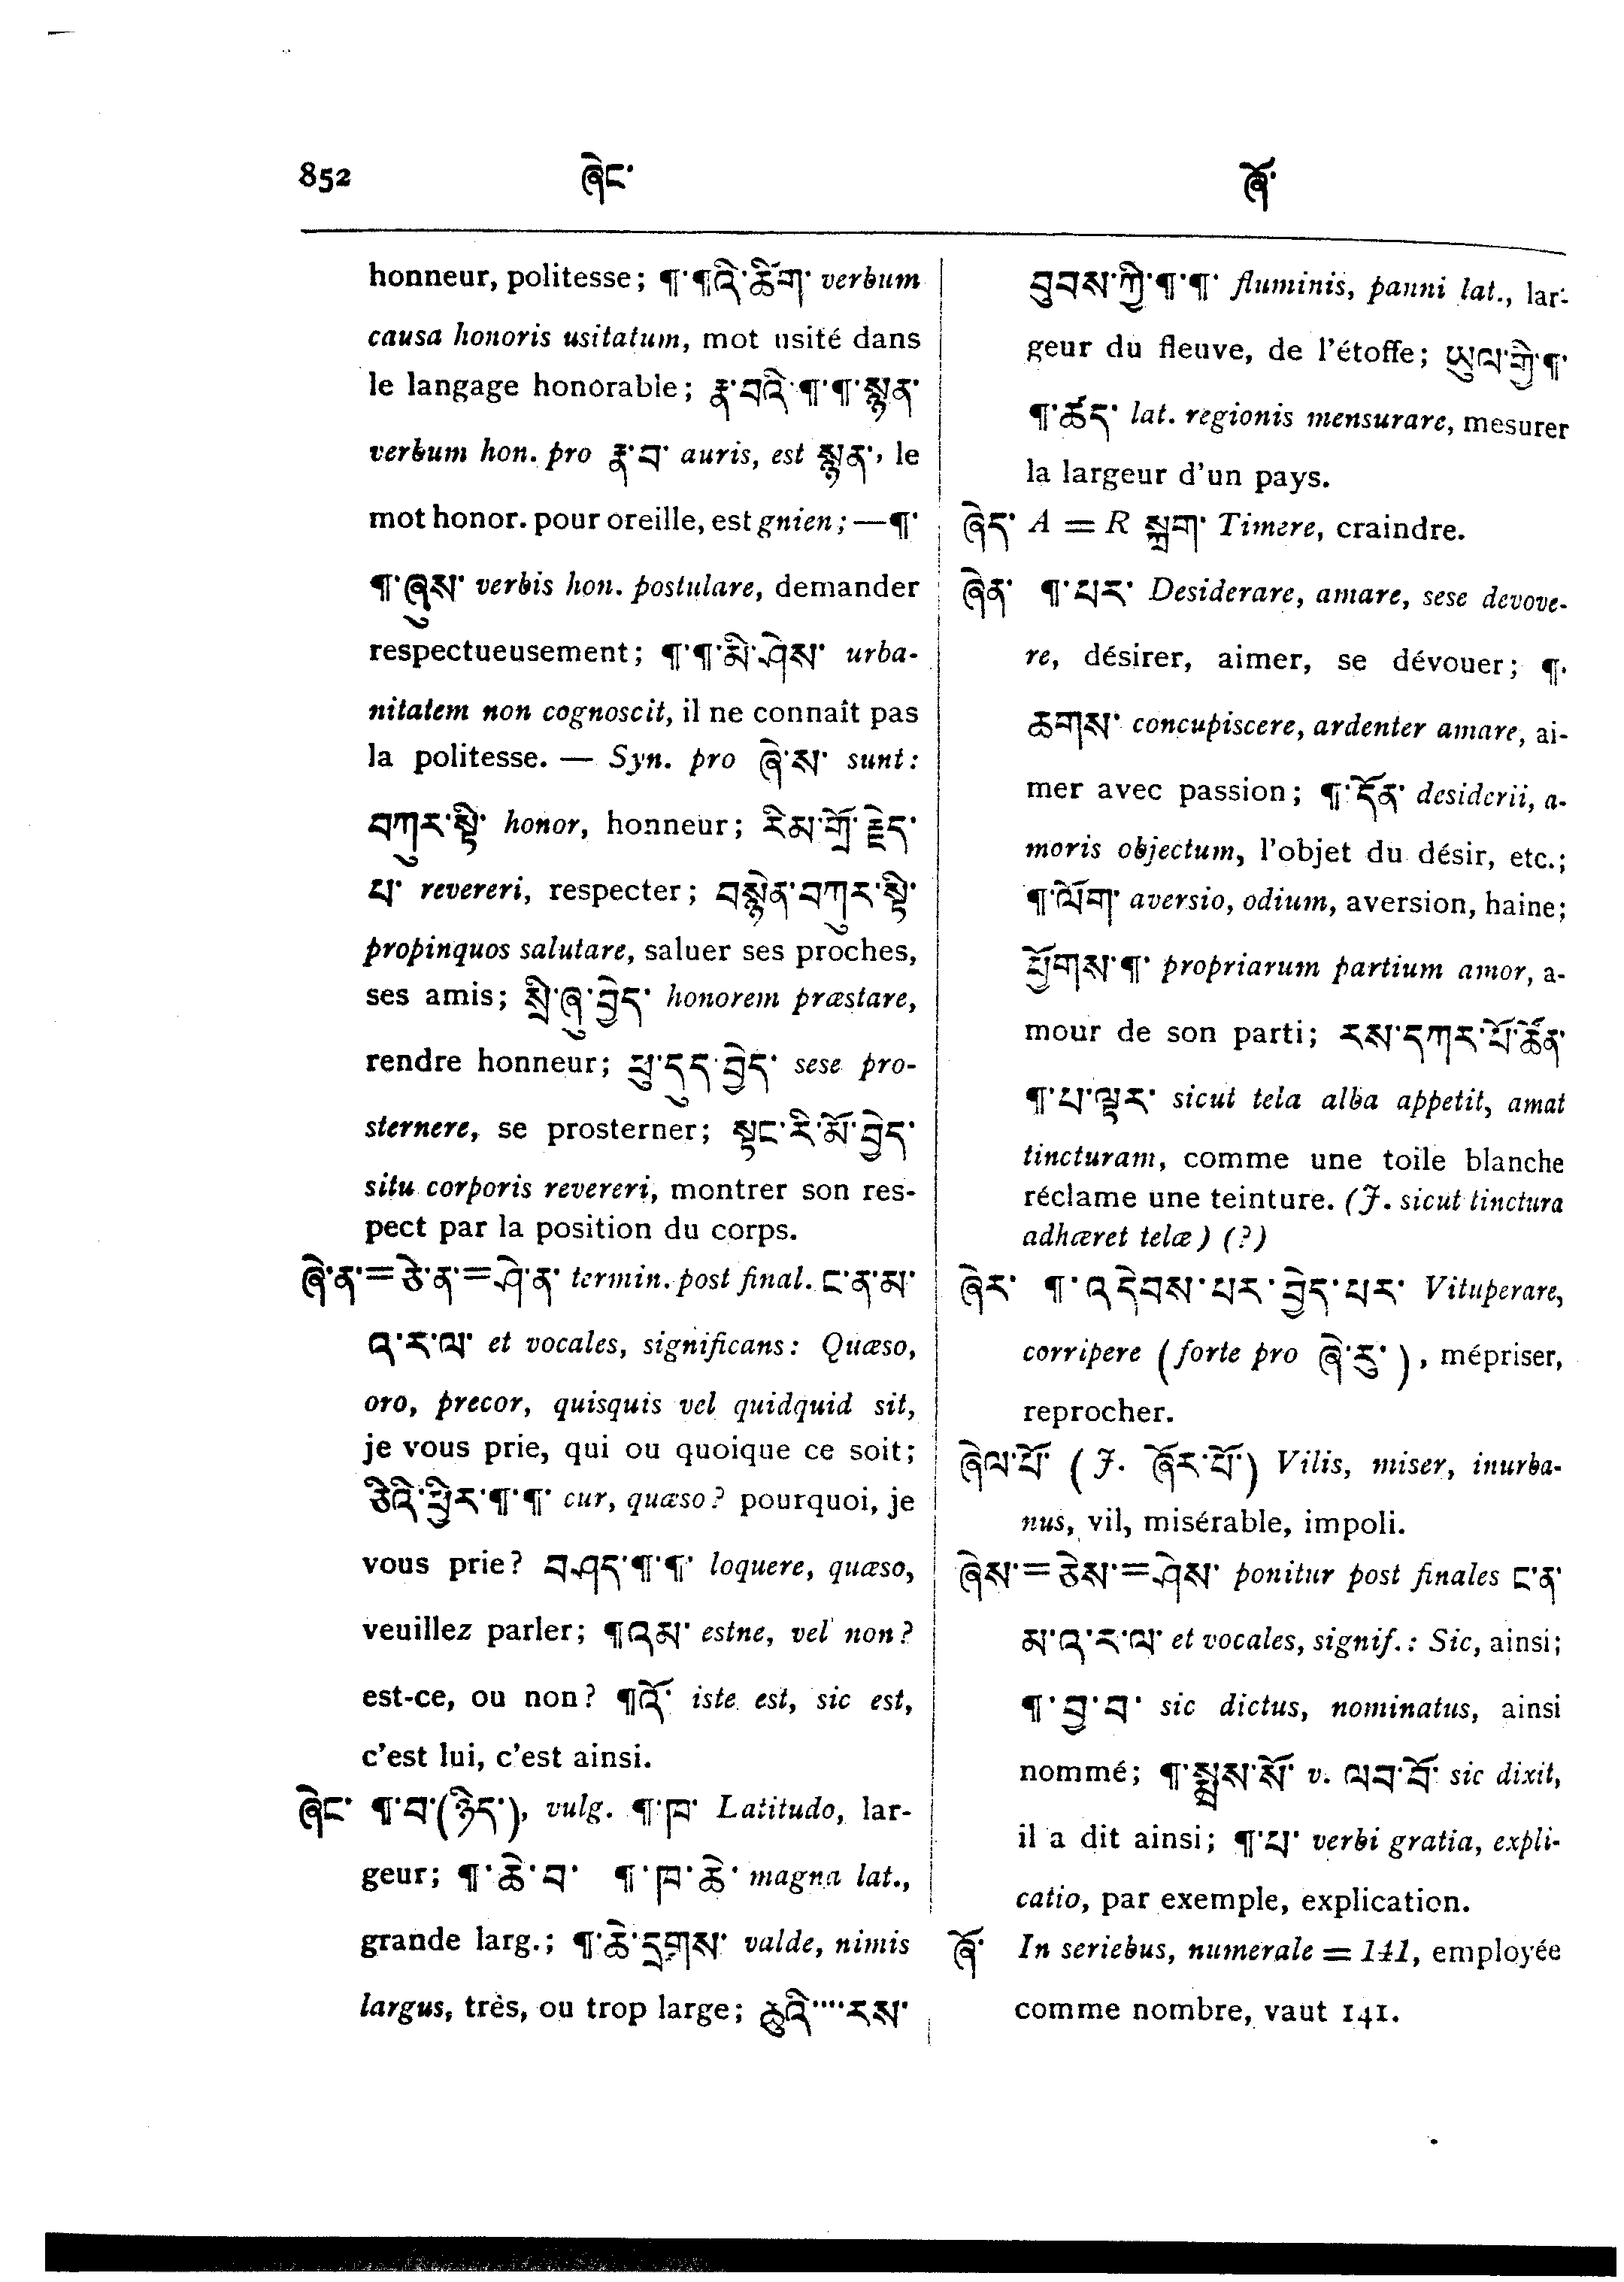 852 ཞེང་ ཞོ་
honneur, politesse; ¶་¶འི་ཚིག་ verbum
causa honoris usitatum, mot usité dans
le langage honorable; རྣ་བའི་¶་¶་སྙན་
verbum hon. pro རྣ་བ་ auris, est སྙན་, le
mot honor. pour oreille, est gnien; —¶་
¶་ཞུས་ verbis hon. postulare, demander
respectueusement; ¶་¶་མི་ཤེས་ urba-
nitatem non cognoscit, il ne connaît pas
la politesse. — Syn. pro ཞེ་ས་ sunt:
བཀུར་སྟི་ honor, honneur; རིམ་གྲོ་རྗེད་
པ་ revereri, respecter; བསྙེན་བཀུར་སྟི་
propinquos salutare, saluer ses proches,
ses amis; སྲི་ཞུ་བྱེད་ honorem præstare,
rendre honneur; ཕུ་དུད་བྱེད་ sese pro-
sternere, se prosterner; སྟང་རི་མོ་བྱེད་
situ corporis revereri, montrer son res-
pect par la position du corps.
ཞེ་ན་=ཅེ་ན་=ཤེ་ན་ termin. post final. ང་ན་མ་
འ་ར་ལ་ et vocales, significans: Quæso,
oro, precor, quisquis vel quidquid sit,
je vous prie, qui ou quoique ce soit;
ཅིའི་ཕྱིར་¶་¶་ cur, quæso? pourquoi, je
vous prie? བཤད་¶་¶་ loquere, quæso,
veuillez parler; ¶འམ་ estne, vel non?
est-ce, ou non? ¶འོ་ iste est, sic est,
c'est lui, c'est ainsi.
ཞེང་ ¶་བ་(ཉིད་), vulg. ¶་ཁ་ Latitudo, lar-
geur; ¶་ཆེ་བ་ ¶་ཁ་ཆེ་ magna lat.,
grande larg.; ¶་ཆེ་དྲགས་ valde, nimis
largus, très, ou trop large; ཆུའི་····རས་
བུབས་ཀྱི་¶་¶་ fluminis, panni lat., lar-
geur du fleuve, de l'étoffe; ཡུལ་གྱི་¶་
¶་ཚད་ lat. regionis mensurare, mesurer
la largeur d'un pays.
ཞེད་ A = R སྐྲག་ Timere, craindre.
ཞེན་ ¶་པར་ Desiderare, amare, sese devove-
re, désirer, aimer, se dévouer; ¶་
ཆགས་ concupiscere, ardenter amare, ai-
mer avec passion; ¶་དོན་ desiderii, a-
moris objectum, l'objet du désir, etc.;
¶་ལོག་ aversio, odium, aversion, haine;
ཕྱོགས་¶་ propriarum partium amor, a-
mour de son parti; རས་དཀར་པོ་ཚོན་
¶་པ་ལྟར་ sicut tela alba appetit, amat
tincturam, comme une toile blanche
réclame une teinture. (J. sicut tinctura
adhæret telæ) (?)
ཞེར་ ¶་འདེབས་པར་བྱེད་པར་ Vituperare,
corripere (forte pro ཞེ་རུ་), mépriser,
reprocher.
ཞེལ་པོ་ (J. ཞོར་པོ་) Vilis, miser, inurba-
nus, vil, misérable, impoli.
ཞེས་=ཅེས་=ཤེས་ ponitur post finales ང་ན་
མ་འ་ར་ལ་ et vocales, signif.: Sic, ainsi;
¶་བྱ་བ་ sic dictus, nominatus, ainsi
nommé; ¶་སྨྲས་སོ་ v. ལབ་བོ་ sic dixit,
il a dit ainsi; ¶་པ་ verbi gratia, expli-
catio, par exemple, explication.
ཞོ་ In seriebus, numerale = 141, employée
comme nombre, vaut 141.